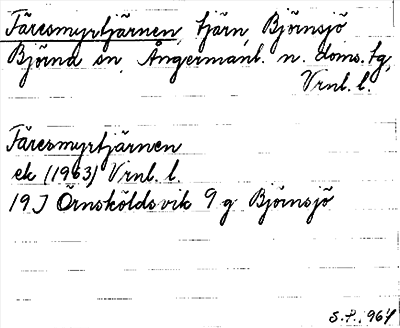 Täresmyrtjärnen, tjärn, Björnsjö
Björna sn, Ångermanl. n. doms. tg,
Vrnl. l.
Täresmyrtjärnen
ek (1963) Vrnl. l.
19J Örnsköldsvik 9g Björnsjö
S.F., 1964